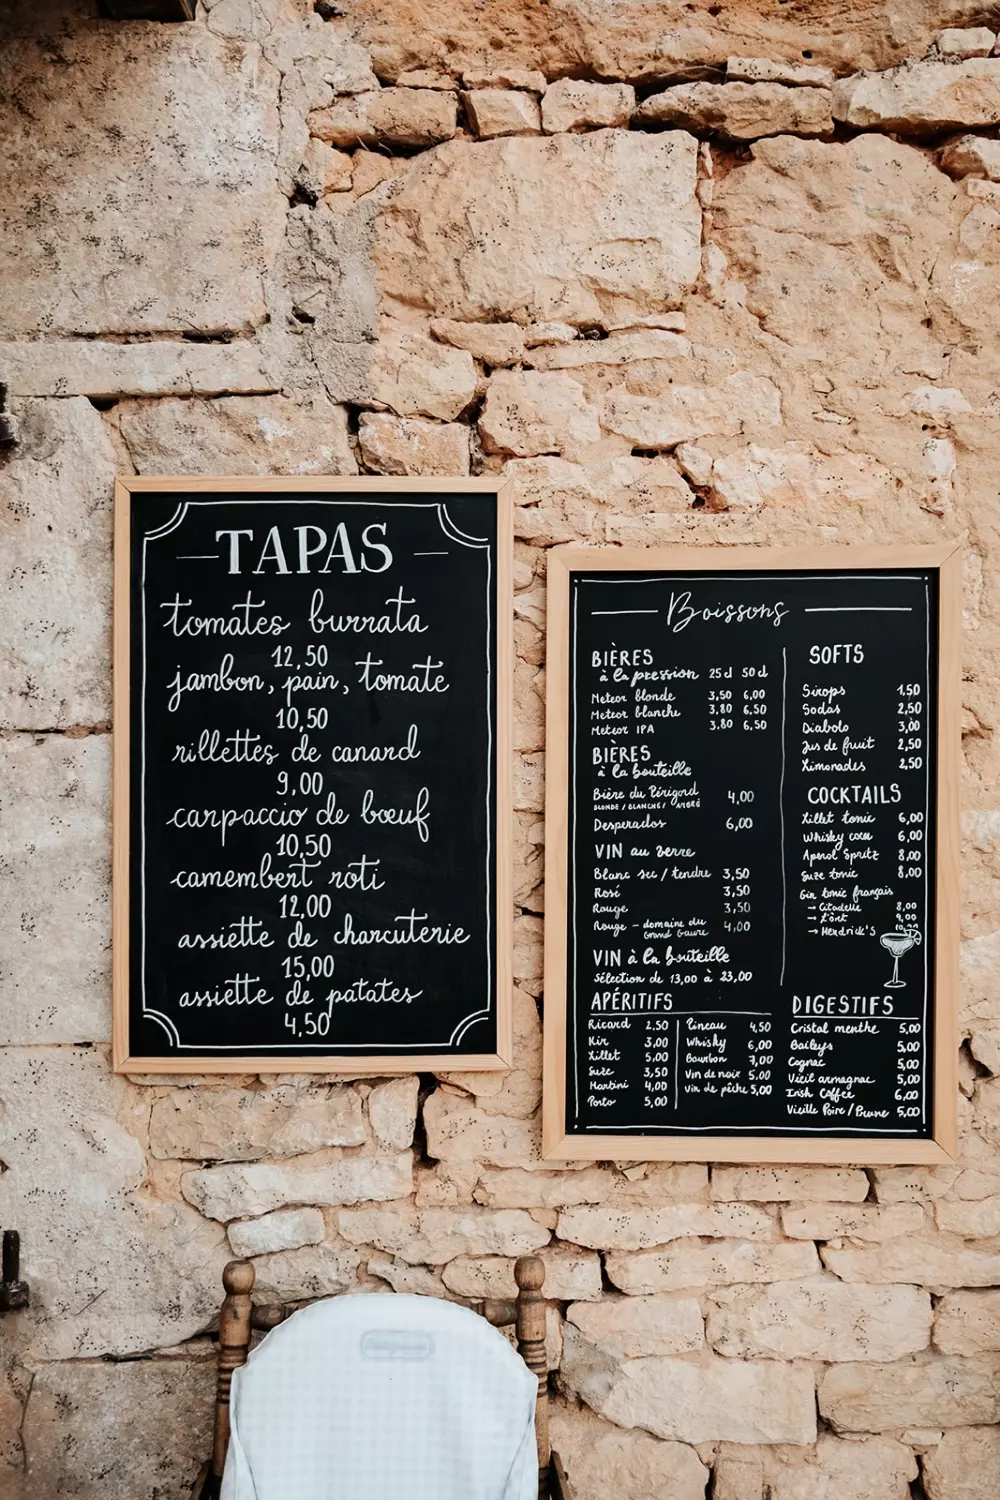 TAPAS
tomates burrata
12,50
jambon, pain, tomate
10,50
rillettes de canard
9,00
carpaccio de bœuf
10,50
camembert roti
12,00
assiette de charcuterie
15,00
assiette de patates
4,50
Boissons
BIÈRES
à la pression 25cl 50cl
Meteor blonde 3,50 6,00
Meteor blanche 3,80 6,50
Meteor IPA 3,80 6,50
BIÈRES
à la bouteille
Bière du Périgord 4,00
BLONDE / BLANCHE / AMBRÉ
Desperados 6,00
VIN au verre
Blanc sec / tendre 3,50
Rosé 3,50
Rouge 3,50
Rouge - domaine du 4,00
Grand
VIN à la bouteille
Sélection de 13,00 à 23,00
SOFTS
Sirops 1,50
Sodas 2,50
Diabolo 3,00
Jus de fruit 2,50
Limonades 2,50
COCKTAILS
Lillet tonic 6,00
Whisky coca 6,00
Aperol Spritz 8,00
Suze tonic 8,00
Gin tonic français
→ Citadelle 8,00
→ 9,00
→ Hendrick's 10,00
APÉRITIFS
Ricard 2,50
Kir 3,00
Lillet 5,00
Suze 3,50
Martini 4,00
Porto 5,00
Pineau 4,50
Whisky 6,00
Bourbon 7,00
Vin de noix 5,00
Vin de pêche 5,00
DIGESTIFS
Cristal menthe 5,00
Baileys 5,00
Cognac 5,00
Vieil armagnac 5,00
Irish Coffee 6,00
Vieille Poire / Prune 5,00